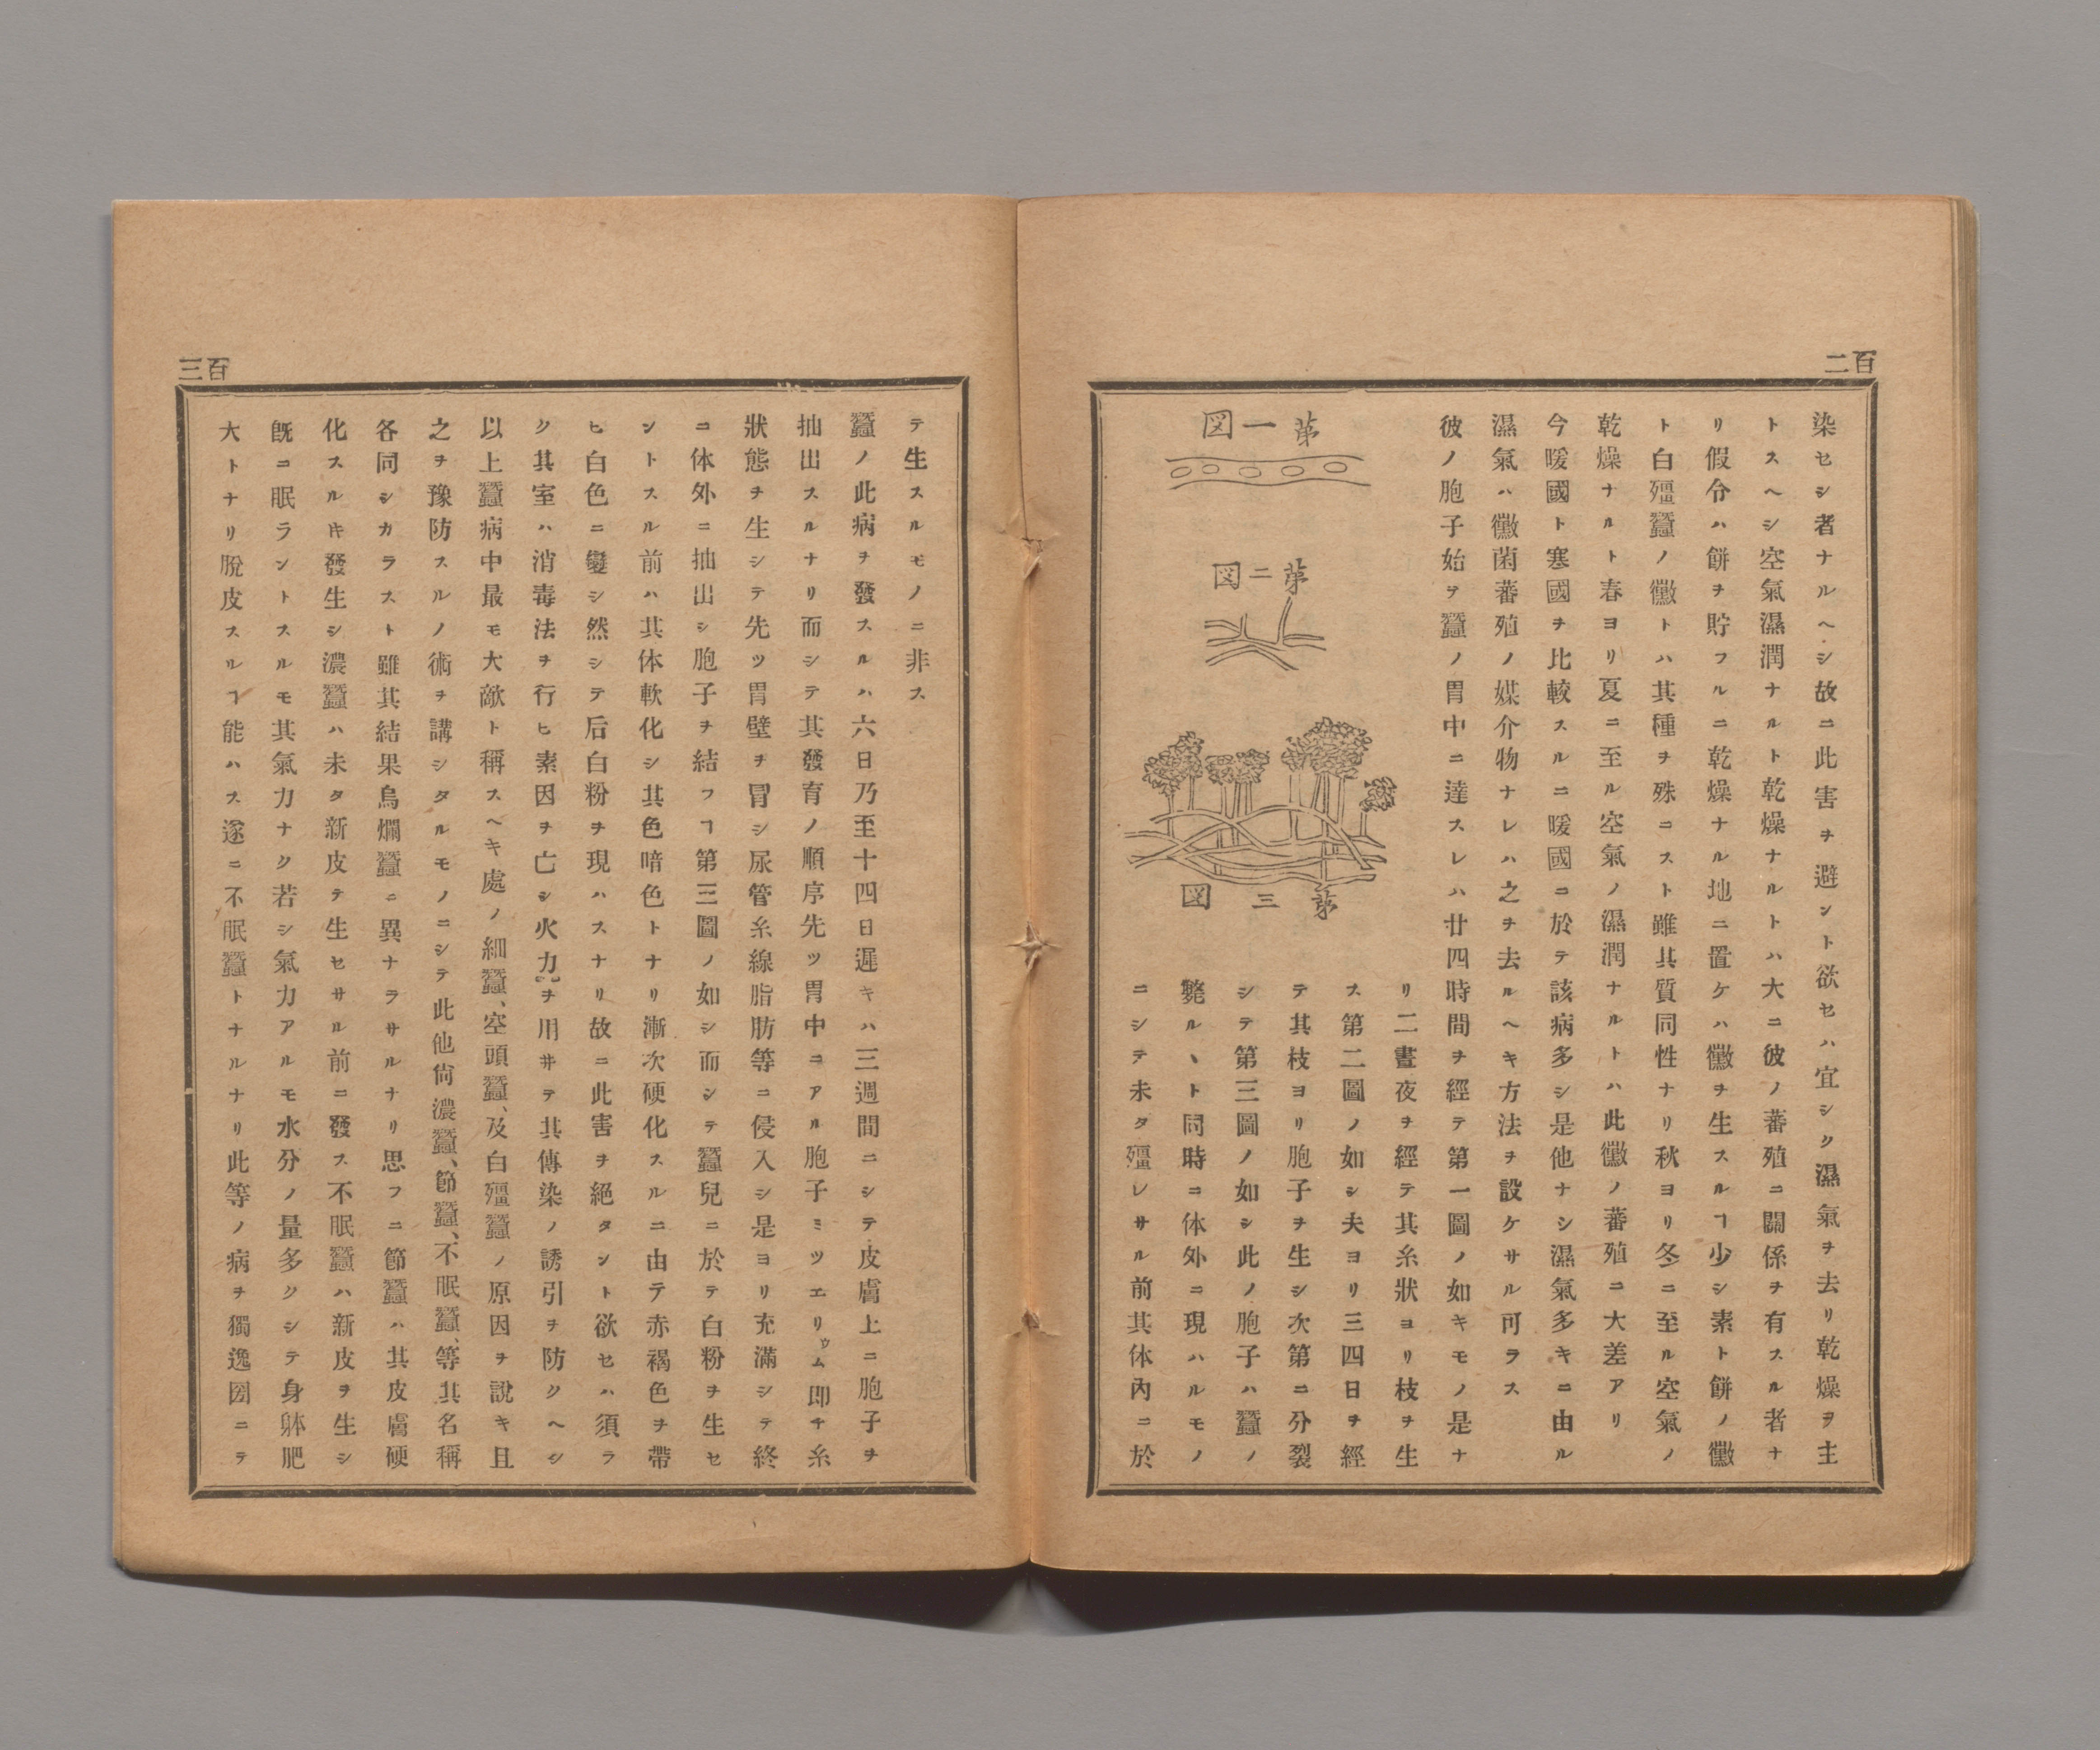 百二
染セシ者ナルヘシ故ニ此害ヲ避ント欲セハ宜シク濕氣ヲ去リ乾燥ヲ主
トスヘシ空氣濕潤ナルト乾燥ナルトハ大ニ彼ノ蕃殖ニ關係ヲ有スル者ナ
リ假令ハ餅ヲ貯フルニ乾燥ナル地ニ置ケハ黴ヲ生スルヿ少シ素ト餅ノ黴
ト白殭蠶ノ黴トハ其種ヲ殊ニスト雖其質同性ナリ秋ヨリ冬ニ至ル空氣ノ
乾燥ナルト春ヨリ夏ニ至ル空氣ノ濕潤ナルトハ此黴ノ蕃殖ニ大差アリ
今暖國ト寒國ヲ比較スルニ暖國ニ於テ該病多シ是他ナシ濕氣多キニ由ル
濕氣ハ黴菌蕃殖ノ媒介物ナレハ之ヲ去ルヘキ方法ヲ設ケサル可ラス
彼ノ胞子始ヲ蠶ノ胃中ニ達スレハ廿四時間ヲ經テ第一圖ノ如キモノ是ナ
第一図
第二図
第三図
リ二晝夜ヲ經テ其糸狀ヨリ枝ヲ生
ス第二圖ノ如シ夫ヨリ三四日ヲ經
テ其枝ヨリ胞子ヲ生シ次第ニ分裂
シテ第三圖ノ如シ此ノ胞子ハ蠶ノ
斃ルヽト同時ニ体外ニ現ハルモノ
ニシテ未タ殭レサル前其体內ニ於
百三
テ生スルモノニ非ス
蠶ノ此病ヲ發スルハ六日乃至十四日遲キハ三週間ニシテ皮膚上ニ胞子ヲ
抽出スルナリ而シテ其發育ノ順序先ツ胃中ニアル胞子ミツエリゥム即チ糸
狀態ヲ生シテ先ツ胃壁ヲ冒シ尿管糸線脂肪等ニ侵入シ是ヨリ充滿シテ終
ニ体外ニ抽出シ胞子ヲ結フヿ第三圖ノ如シ而シテ蠶兒ニ於テ白粉ヲ生セ
ントスル前ハ其体軟化シ其色暗色トナリ漸次硬化スルニ由テ赤褐色ヲ帶
ヒ白色ニ變シ然シテ后白粉ヲ現ハスナリ故ニ此害ヲ絕タント欲セハ須ラ
ク其室ハ消毒法ヲ行ヒ素因ヲ亡シ火力ヲ用井テ其傳染ノ誘引ヲ防クヘシ
以上蠶病中最モ大敵ト稱スヘキ處ノ細蠶、空頭蠶、及白殭蠶ノ原因ヲ說キ且
之ヲ豫防スルノ術ヲ講シタルモノニシテ此他尙濃蠶、節蠶、不眠蠶、等其名稱
各同シカラスト雖其結果烏爛蠶ニ異ナラサルナリ思フニ節蠶ハ其皮膚硬
化スル𪜈發生シ濃蠶ハ未タ新皮テ生セサル前ニ發ス不眠蠶ハ新皮ヲ生シ
旣ニ眠ラントスルモ其氣力ナク若シ氣力アルモ水分ノ量多クシテ身躰肥
大トナリ脫皮スルヿ能ハス遂ニ不眠蠶トナルナリ此等ノ病ヲ獨逸國ニテ